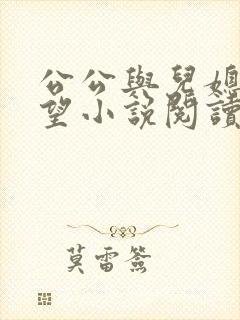 公公與兒媳
望小說閱讀
莫雷簽